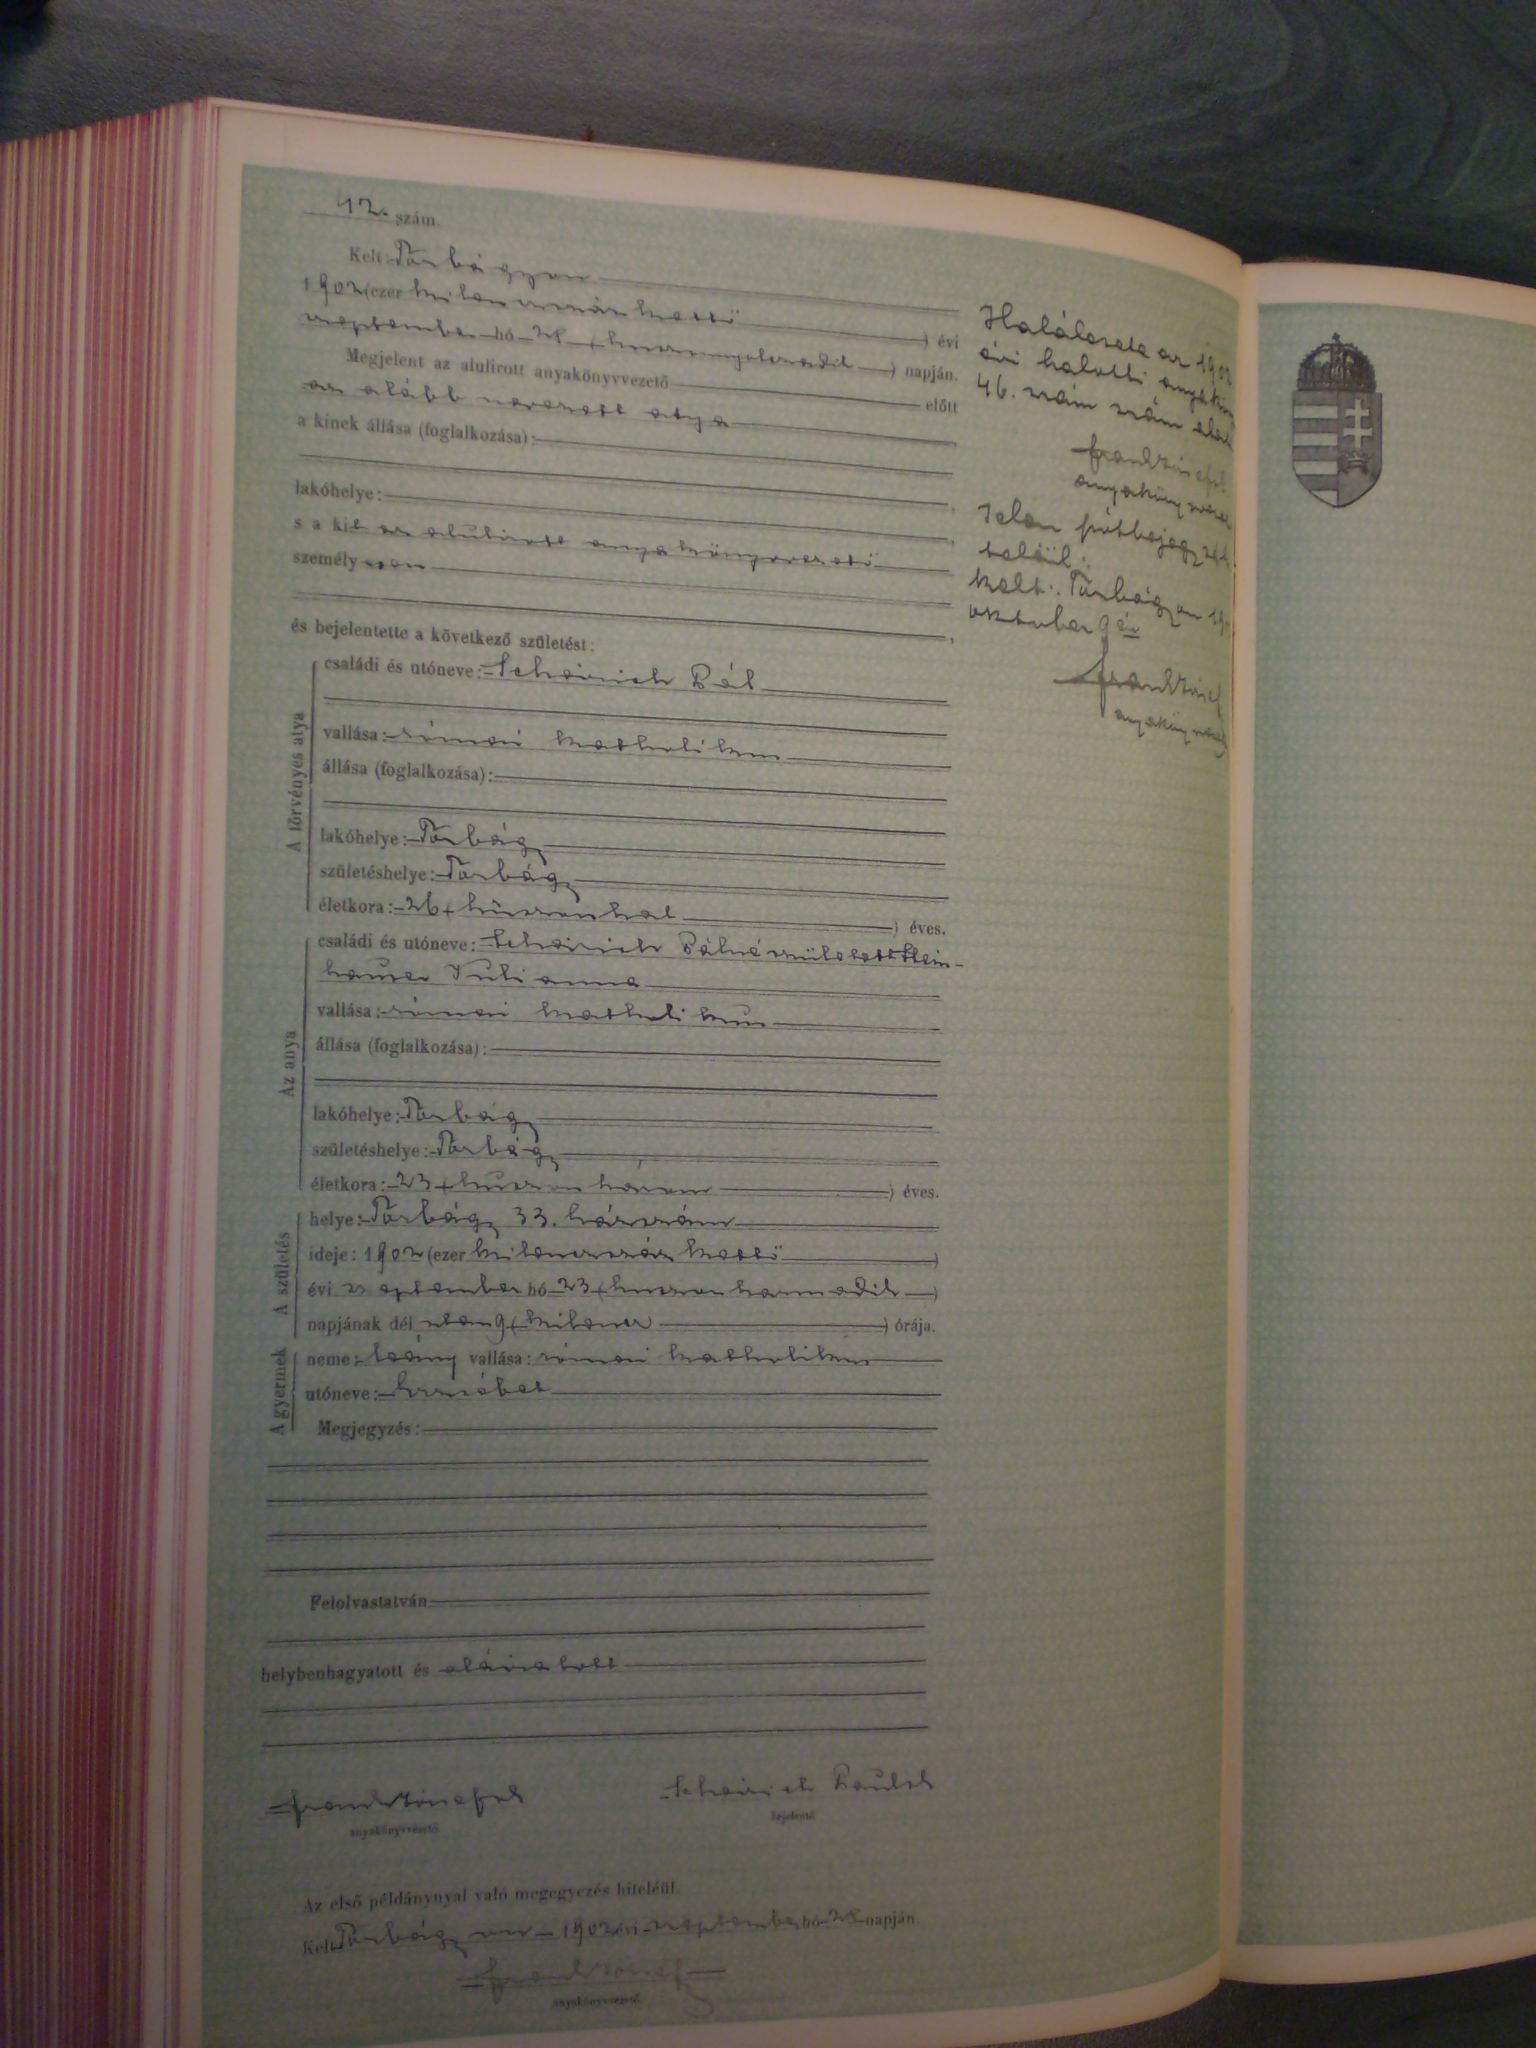 42. szám.
Kelt: Torbágyon
1902 (ezer kilenczszáz kettő ) évi
szeptember hó 28 (huszonnyolczadik ) napján.
Megjelent az alulirott anyakönyvvezető előtt
az alább nevezett atya
a kinek állása (foglalkozása):
lakóhelye:
s a kit az alulirott anyakönyvvezető
személyesen
és bejelentette a következő születést:
A törvényes atya
családi és utóneve: Scheirich Pál
vallása: római katholikus
állása (foglalkozása):
lakóhelye: Torbágy
születéshelye: Torbágy
életkora: 26 (huszonhat ) éves.
Az anya
családi és utóneve: Scheirich Pálné született Stein-
hauser Julianna
vallása: római katholikus
állása (foglalkozása):
lakóhelye: Torbágy
születéshelye: Torbágy
életkora: 23 (huszonhárom ) éves.
A születés
helye: Torbágy 33. házszám
ideje: 1902 (ezer kilenczszáz kettő )
évi szeptember hó 23 (huszonharmadik )
napjának dél után 9 (kilencz ) órája.
A gyermek
neme: leány vallása: római katholikus
utóneve: Erzsébet
Megjegyzés:
Felolvastatván
helybenhagyatott és aláiratott
Frank József
anyakönyvvezető.
Scheirich Paulch
bejelentő
Az első példánynyal való megegyezés hiteléül.
Kelt Torbágyon 1902 évi szeptember hó 28 napján.
Frank József
anyakönyvvezető.
Halálesete az 1902
évi halotti anyakönyv
46. szám szám alatt
Frank József
Jelen
Kelt: Torbágyon 190
oktober 9 én
Frank József